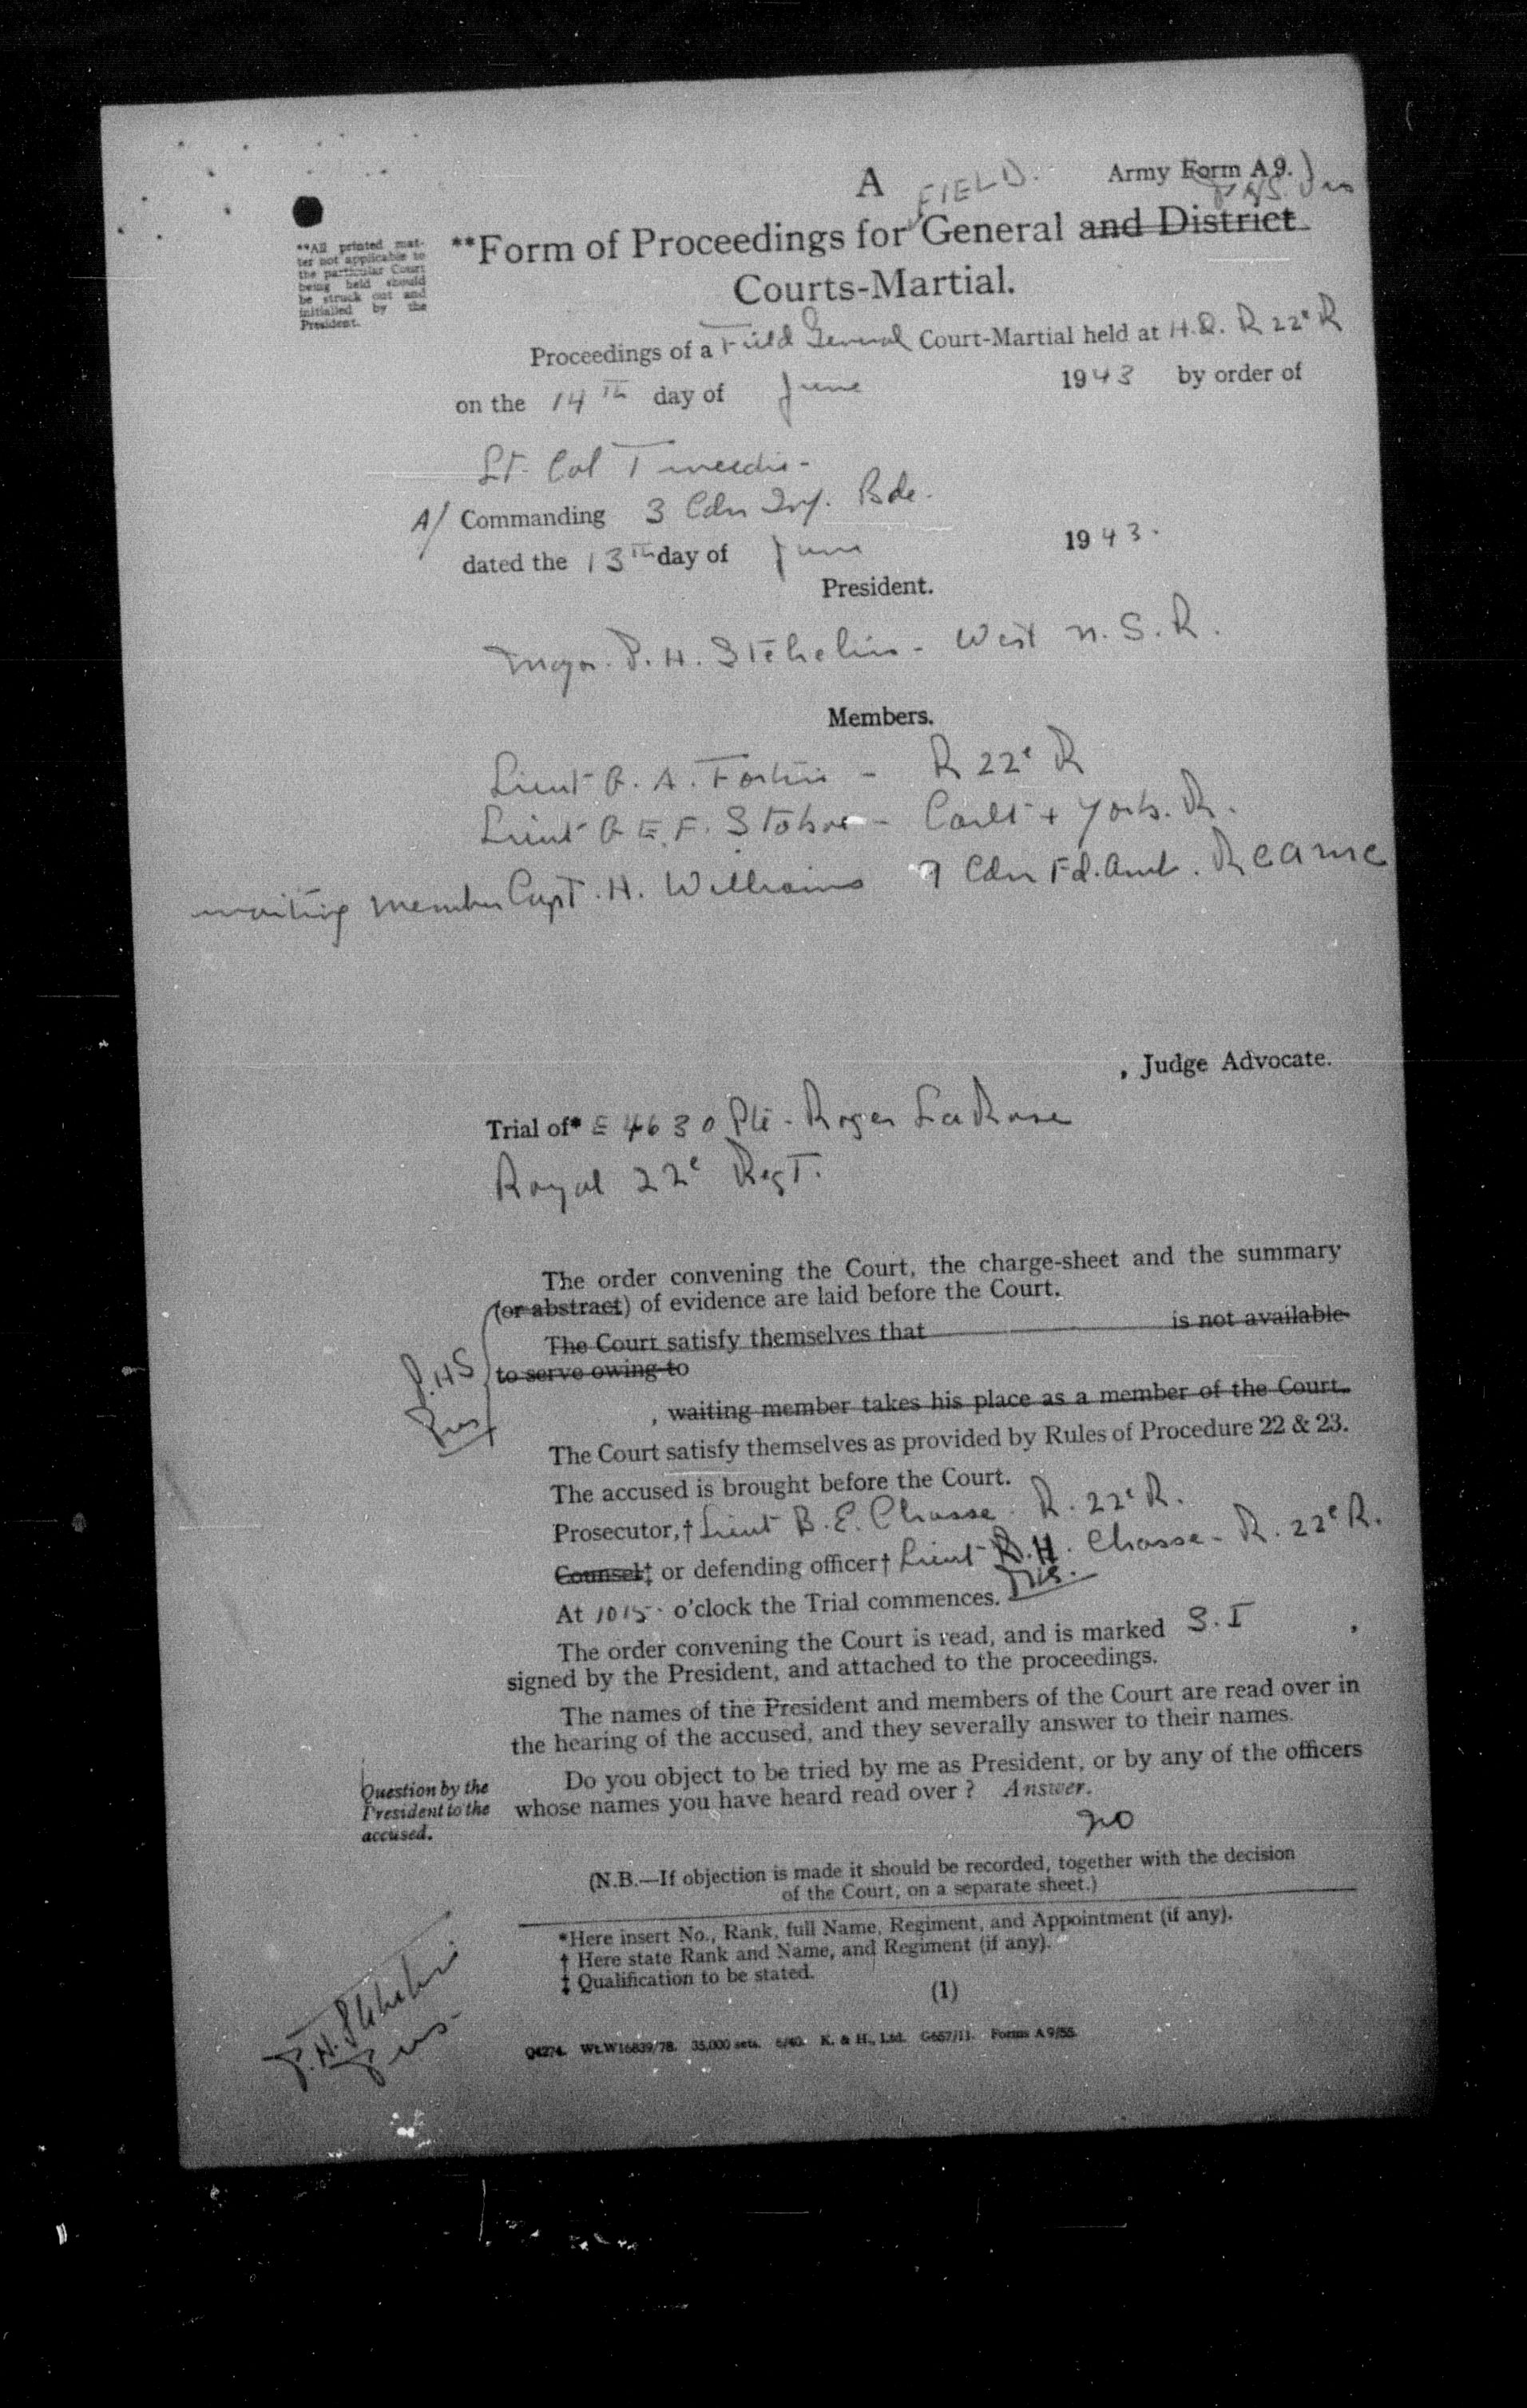 A
FIELD.
Army Form A 9.
**All printed mat-
ter not applicable to
the particular Court
being held should
be struck out and
initialled by the
President.
**Form of Proceedings for General and District
Courts-Martial.
Proceedings of a Field General Court-Martial held at H.Q. R 22e R
on the 14th day of June 1943 by order of
Lt. Col Tweedie -
A/ Commanding 3 Cdn Inf. Bde.
dated the 13th day of June 1943.
President.
Major. P. H. Stehelin - West N.S.R.
Members.
Lieut G. A. Fortin - R 22e R
Lieut G E. F. - Carlt + York. R.
waiting member Capt. H. Williams 9 Cdn Fd. Amb. RCAMC
, Judge Advocate.
Trial of* E 4630 Pte - Roger LaRose
Royal 22e Regt.
The order convening the Court, the charge-sheet and the summary
(or abstract) of evidence are laid before the Court.
The Court satisfy themselves that is not available
to serve owing to
P.H.S
Pres
, waiting member takes his place as a member of the Court.
The Court satisfy themselves as provided by Rules of Procedure 22 & 23.
The accused is brought before the Court.
Prosecutor,† Lieut B. E. Chasse. R. 22e R.
Counsel‡ or defending officer† Lieut R.H. Chasse - R. 22e R.
At 1015 o'clock the Trial commences.
The order convening the Court is read, and is marked S.I ,
signed by the President, and attached to the proceedings.
The names of the President and members of the Court are read over in
the hearing of the accused, and they severally answer to their names.
Question by the
President to the
accused.
Do you object to be tried by me as President, or by any of the officers
whose names you have heard read over ? Answer.
No
(N.B.—If objection is made it should be recorded, together with the decision
of the Court, on a separate sheet.)
*Here insert No., Rank, full Name, Regiment, and Appointment (if any).
† Here state Rank and Name, and Regiment (if any).
‡ Qualification to be stated.
(1)
P. H. Stehelin
Pres.
Q4274. Wt.W16839/78. 35,000 sets. 6/40. K. & H., Ltd. G657/11. Forms A9/55.